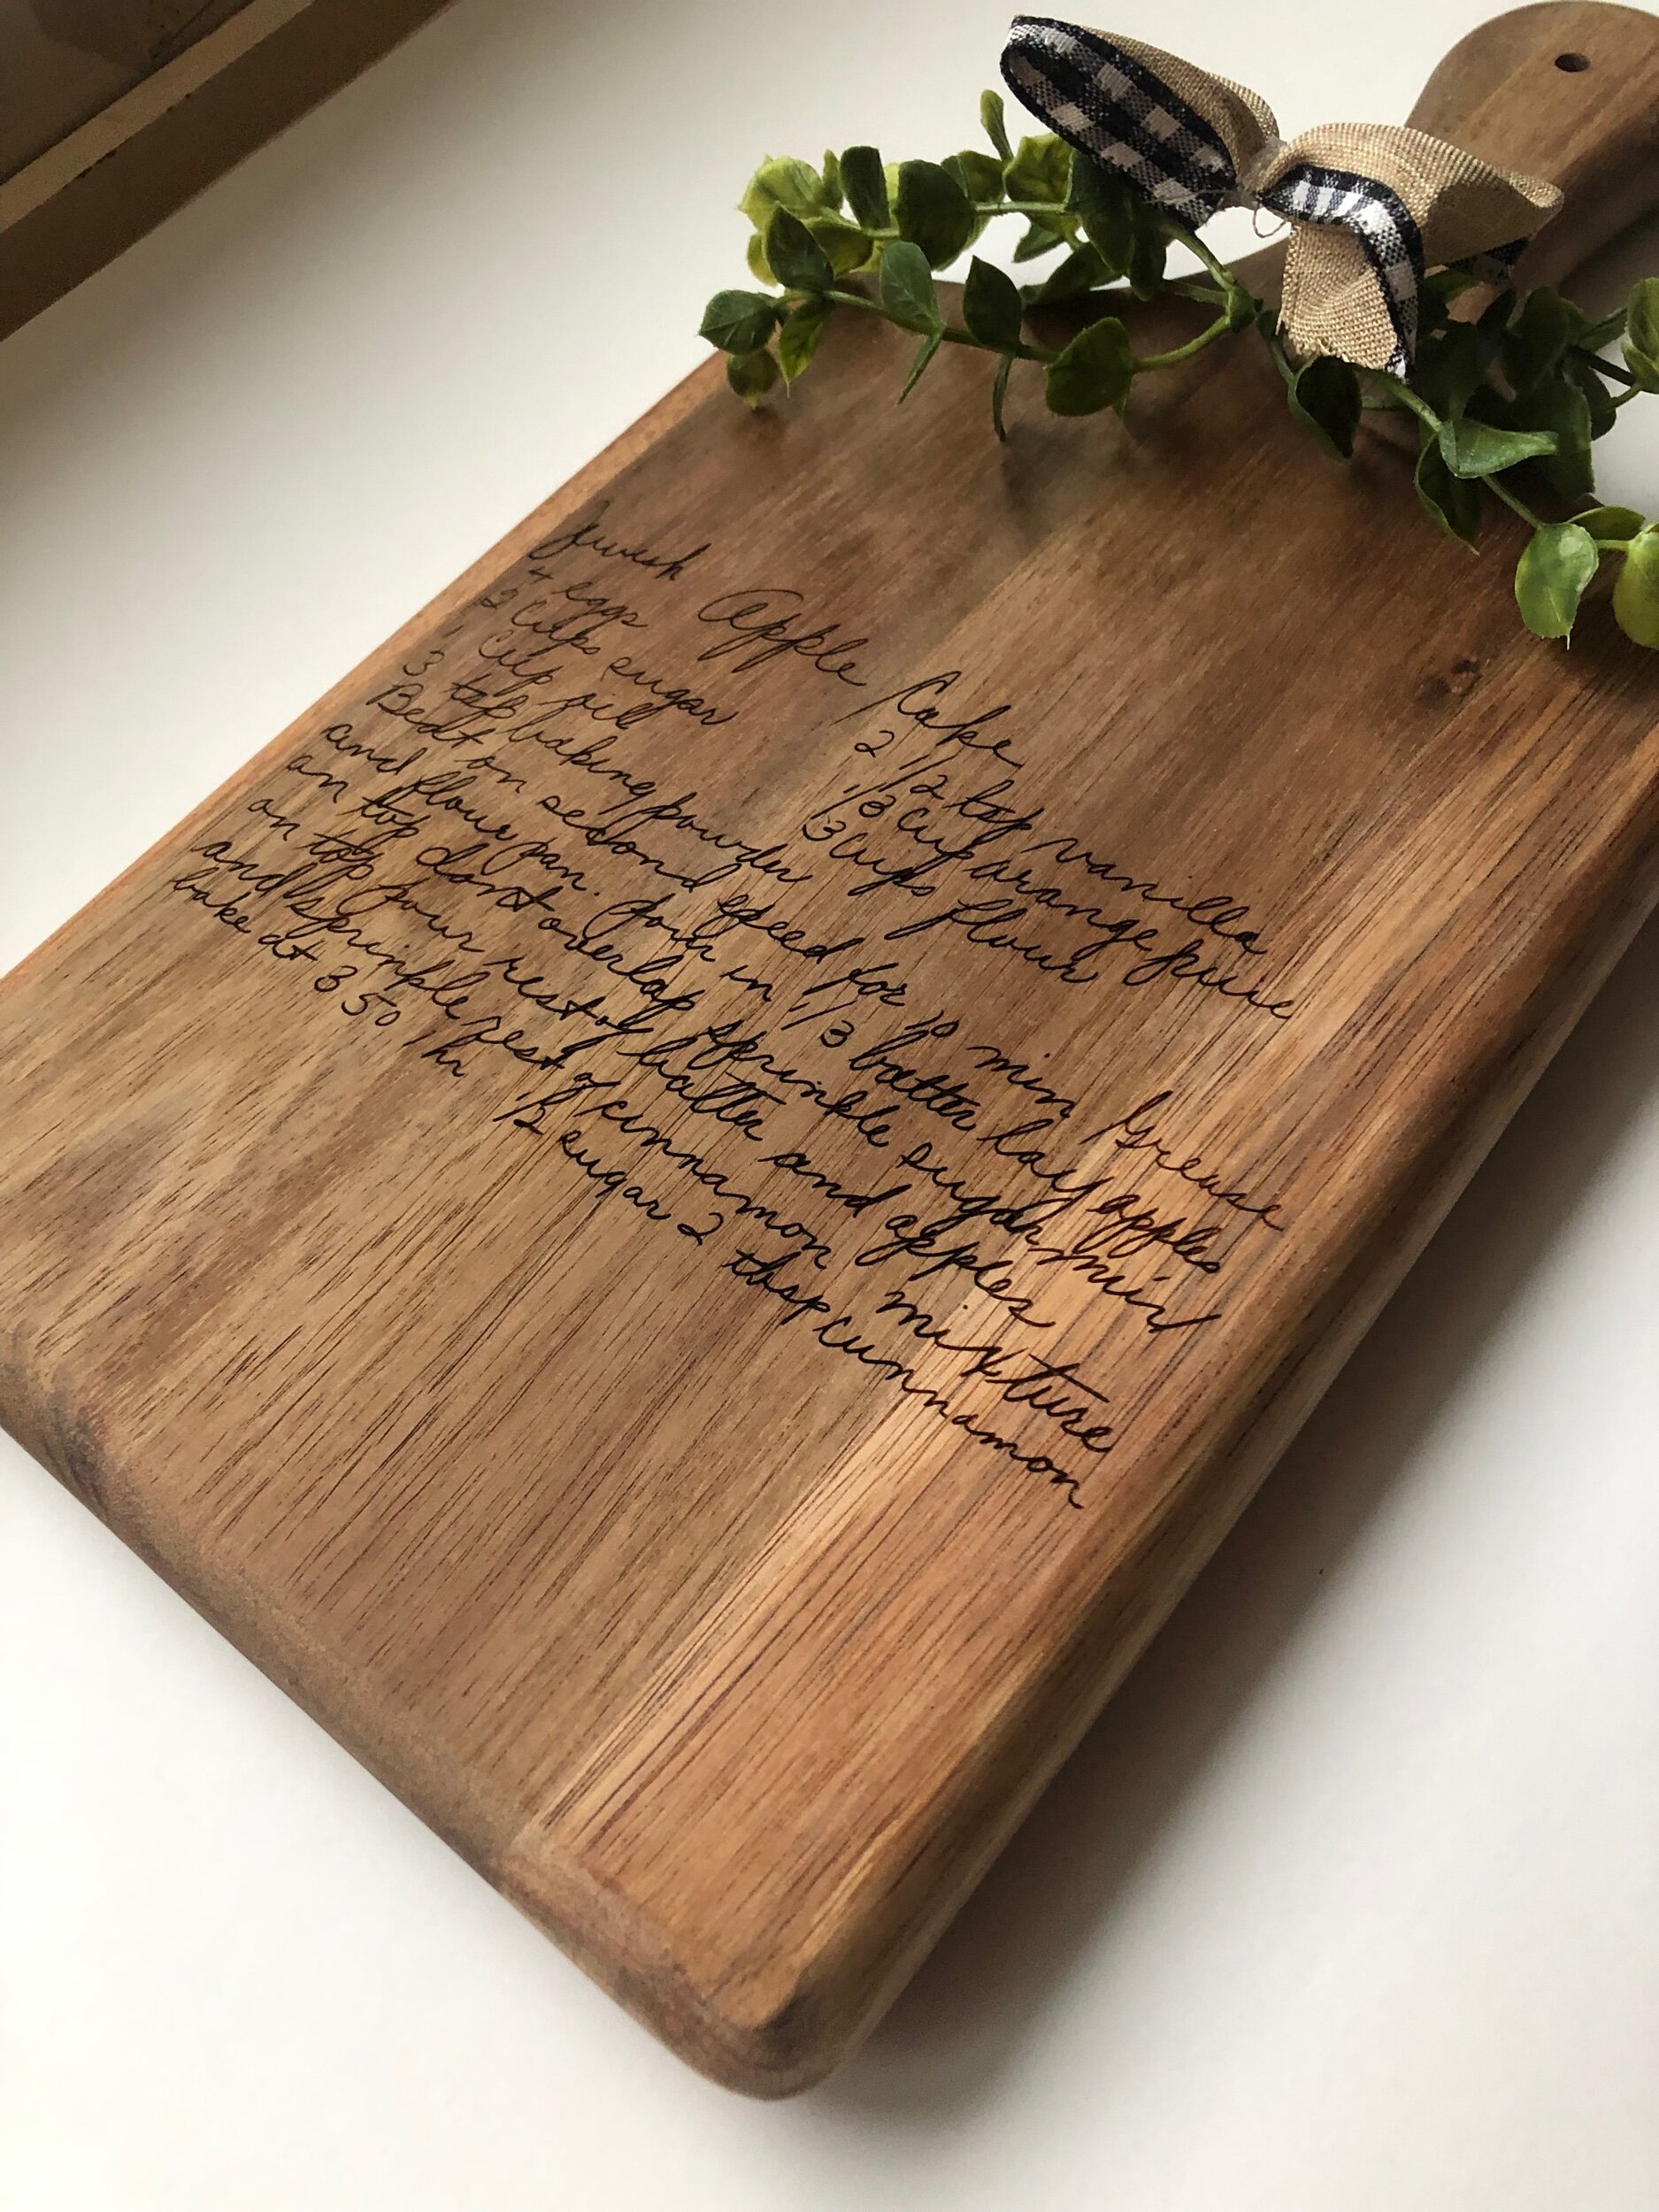 Jewish Apple Cake
4 eggs 2 1/2 tsp vanilla
2 Cups sugar 1/3 Cup orange juice
1 Cup oil 3 Cups flour
3 tsp baking powder
Beat on second speed for 10 min Grease
and flour pan. Pour in 1/3 batter lay apples
on top dont overlap sprinkle sugar mix
on top pour rest of batter and apples
and sprinkle rest of cinnamon mixture
bake at 350 1 hr sugar 2 tbsp cinnamon